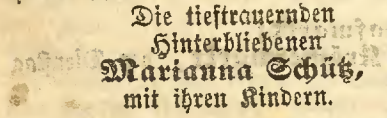 Die tieftrauernden
Hinterbliebenen
Marianna Schütz,
mit ihren Kindern.